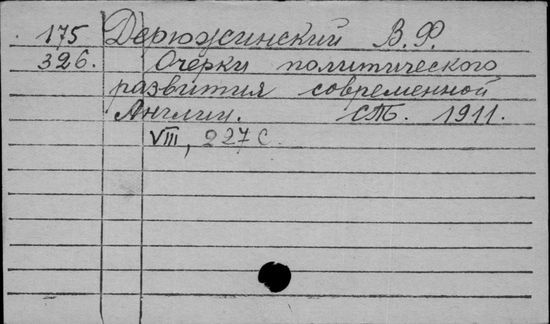 175 Дерюжинский В.Ф.
326. Очерки политического
развития современной
Англии. СПб. 1911.
VIII, 227 с.